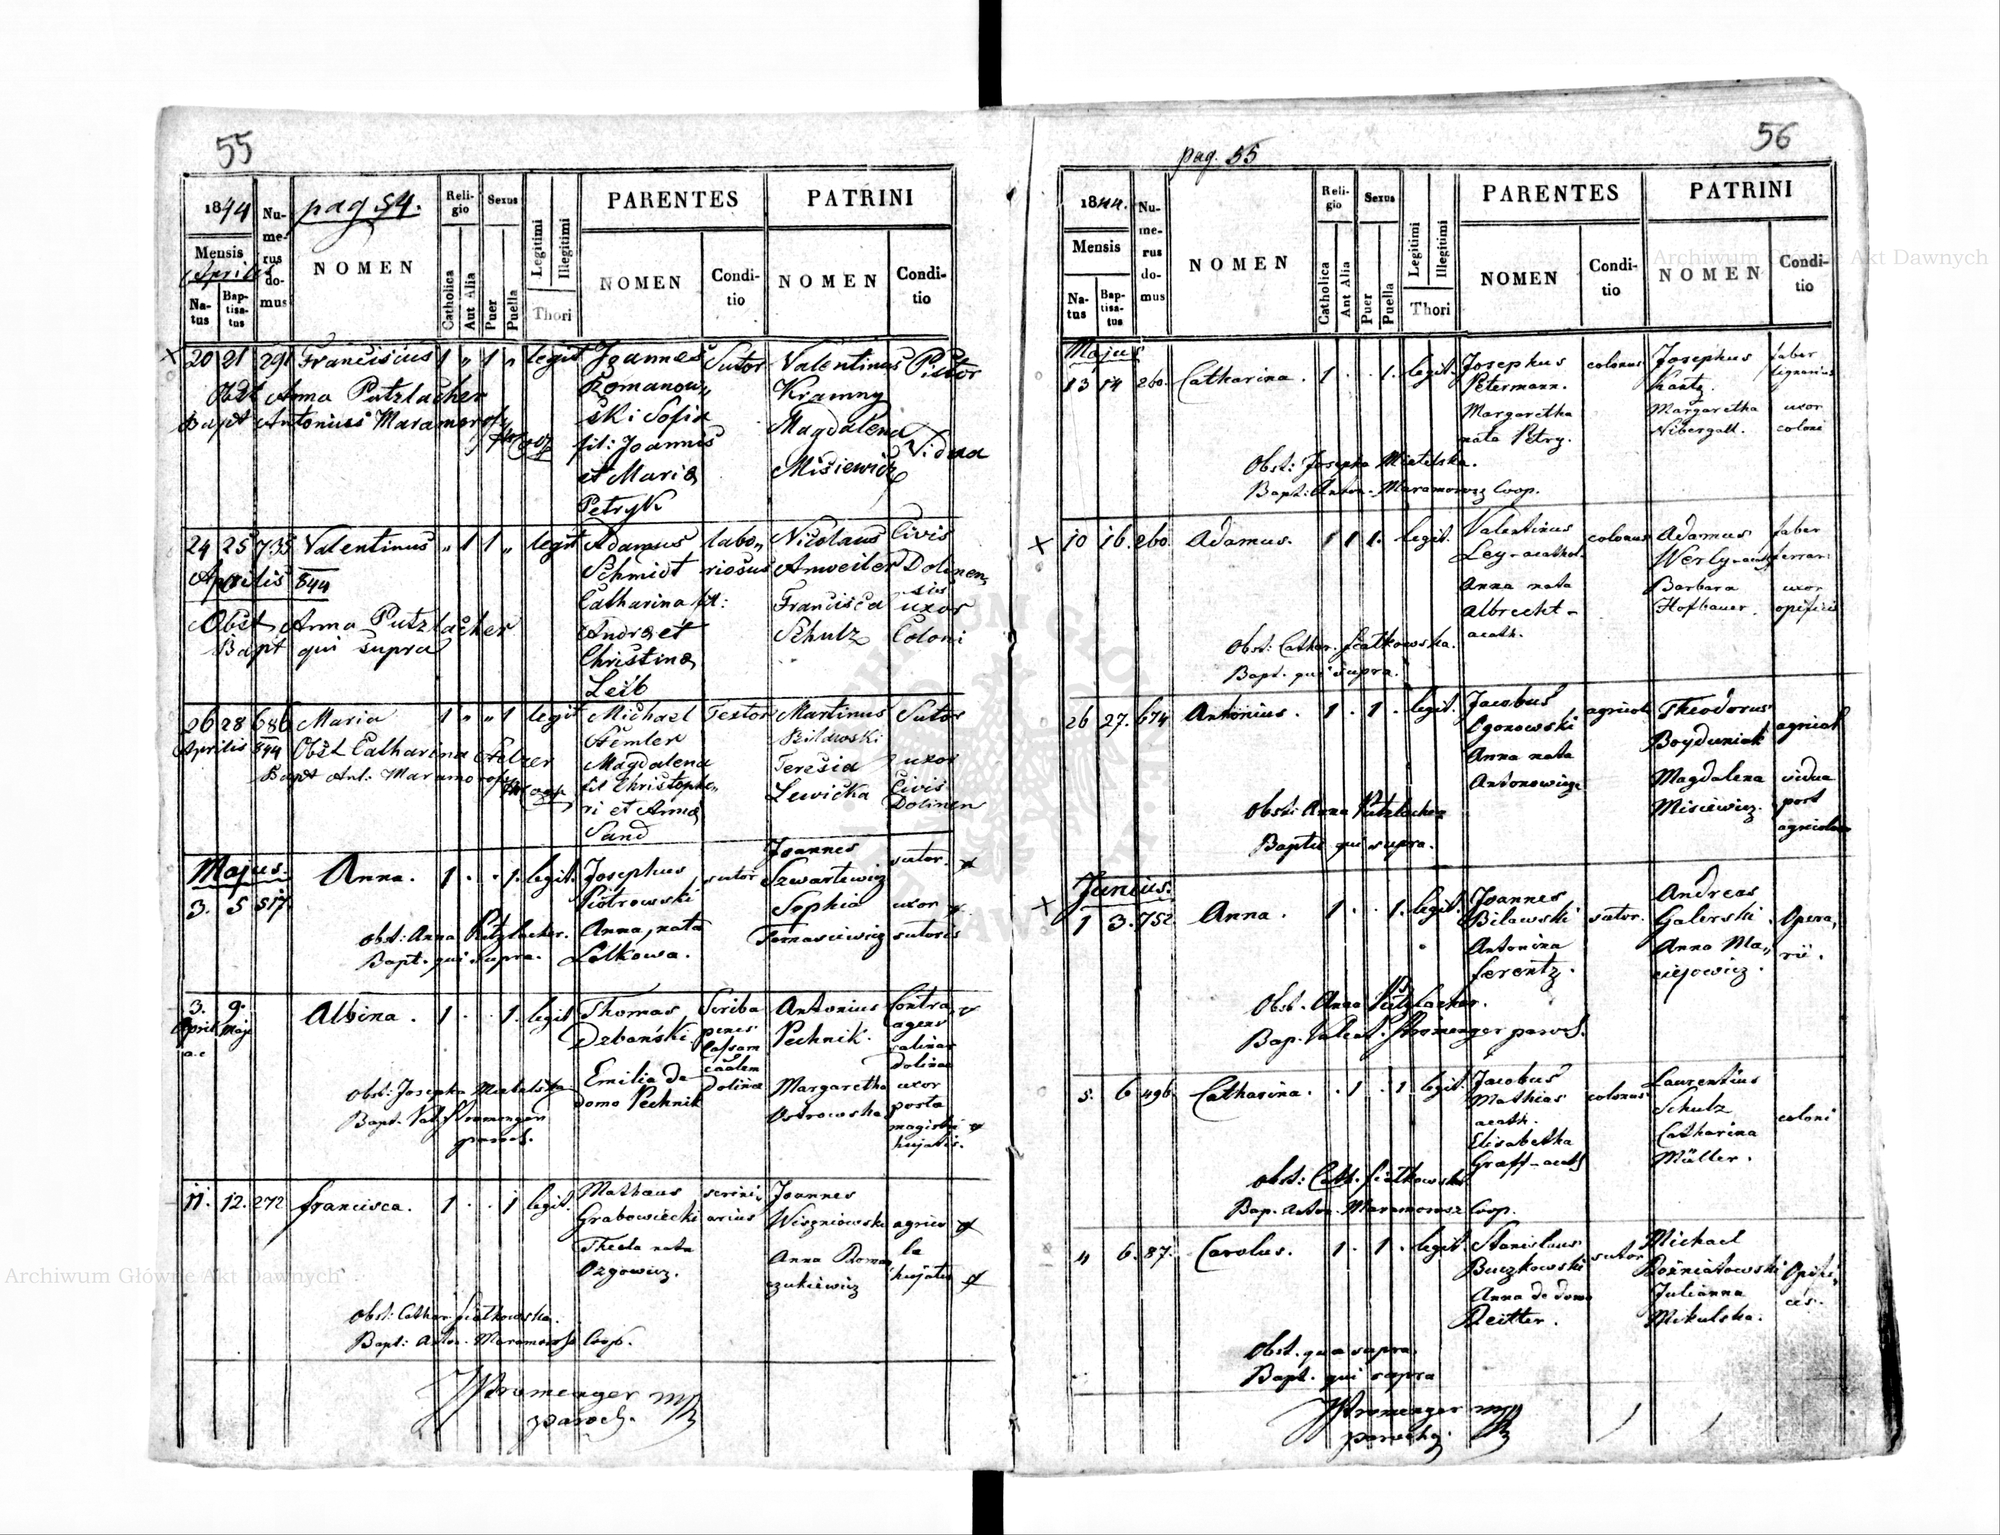 55
pag. 54.
1844
Mensis
Aprilis
Natus
Baptisatus
Numerus domus
NOMEN
Religio
Catholica
Aut Alia
Sexus
Puer
Puella
Legitimi
Illegitimi
Thori
PARENTES
NOMEN
Conditio
PATRINI
NOMEN
Conditio
20 21 291 Franciscus 1 „ 1 „ legit Joannes Sutor Valentinus Pistor
Romanow„ Kramny
ski Sofia Magdalena Vidua
fil: Joannis Misiewicz
et Maria
Petryk
Obst Anna Putzlacher
Bapt Antonius Maramorosz
24 25 735 Valentinus „ 1 1 „ legit Adamus labo„ Nicolaus Civis
Aprilis 844 Schmidt riosus Anweiler Dolinen„
sis
Catharina fil: Francisca uxor
Andrae et Schulz Coloni
Christina
Leib
Obst Anna Putzlacher
Bapt qui supra
26 28 686 Maria 1 „ „ 1 legit Michael Textor Martinus Sutor
Aprilis 844 Hemler Bilawski
Magdalena Teresia uxor
fil Christopho„ Lewicka Civis
ri et Anna Dolinen
Sand
Obst Catharina
Bapt Ant: Maramorosz Coop
Majus.
3. 5 517. Anna. 1 . . 1. legit. Josephus sutor Joannes sutor.
Piotrowski Szwartewicz
Anna, nata Sophia uxor
Lelkowa. Tomasiewicz sutoris
Obst: Anna Putzlacher.
Bapt. qui supra.
3. 9. Albina. 1 . . 1. legit Thomas Scriba Antonius Contra„
April Maji Dzbański penes Pechnik. agens
a.c. Cassam salinar
Emilia de Dolinae Margaretha uxor
domo Pechnik Ostrowska porta
magistri
hujatis.
Obst: Josepha Mietelska
Bapt. Val. Stromenger
paroch.
11. 12. 272 Francisca. 1 . . 1 legit. Mathaeus scrini„ Joannes
Grabowiecki arius Wiszniowski agrico
Thecla nata Anna Roman la
Ozgowicz. czukiewicz hujatis
Obst: Cathar. Fiatkowska.
Bapt: Anton. Maramorosz Coop.
VStromenger mp
paroch.
56
pag. 55
1844.
Mensis
Natus
Baptisatus
Numerus domus
NOMEN
Religio
Catholica
Aut Alia
Sexus
Puer
Puella
Legitimi
Illegitimi
Thori
PARENTES
NOMEN
Conditio
PATRINI
NOMEN
Conditio
Majus
13 14 260. Catharina. 1 . . 1. legit. Josephus colonus Josephus faber
Petermann. Kautz. lignarius
Margaretha Margaretha uxor
nata Petry. Nibergall. coloni
Obst: Josepha Mietelska.
Bapt: Anton. Maramorosz Coop.
10 16. 260. Adamus. 1 1 1. legit. Valentinus colonus Adamus faber
Ley - acathol. Werly - acath ferrar:
Anna nata Barbara uxor
Albrecht - Hofbauer. opificis
acath.
Obst: Cathar. Fiatkowska.
Bapt. qui supra.
26 27. 674 Antonius. 1 . 1 . legit. Jacobus agricola Theodorus
Ogonowski Boyduniak agricol
Anna nata Magdalena vidua
Antonowicz Misiewicz. post
agricolam
Obst: Anna Putzlacher
Baptis qui supra.
Junius.
1 3. 752. Anna. 1 . . 1. legit. Joannes Andreas
Bilawski sutor. Galerski Opera„
Antonina Anna Ma„ rii.
Ferentz. ciejowicz.
Obst. Anna Putzlacher.
Bap. Valent. Stromenger paroch.
5. 6 496. Catharina. . 1 . 1 legit. Jacobus colonus Laurentius
Mathias Schulz coloni
acath. Catharina
Elisabetha Müller.
Graff - acath
Obst: Cath. Fiatkowska
Bap. Anton. Maramorosz Coop.
4 6. 87. Carolus. 1 . 1 . legit. Stanislaus sutor Michael
Buczkowski Bożniatowski Opifi„
Anna de domo Julianna ces.
Reitter. Mikulska.
Obst. qua supra.
Bapt. qui supra
VStromenger mp
parochy.
Archiwum Główne Akt Dawnych
Archiwum Główne Akt Dawnych